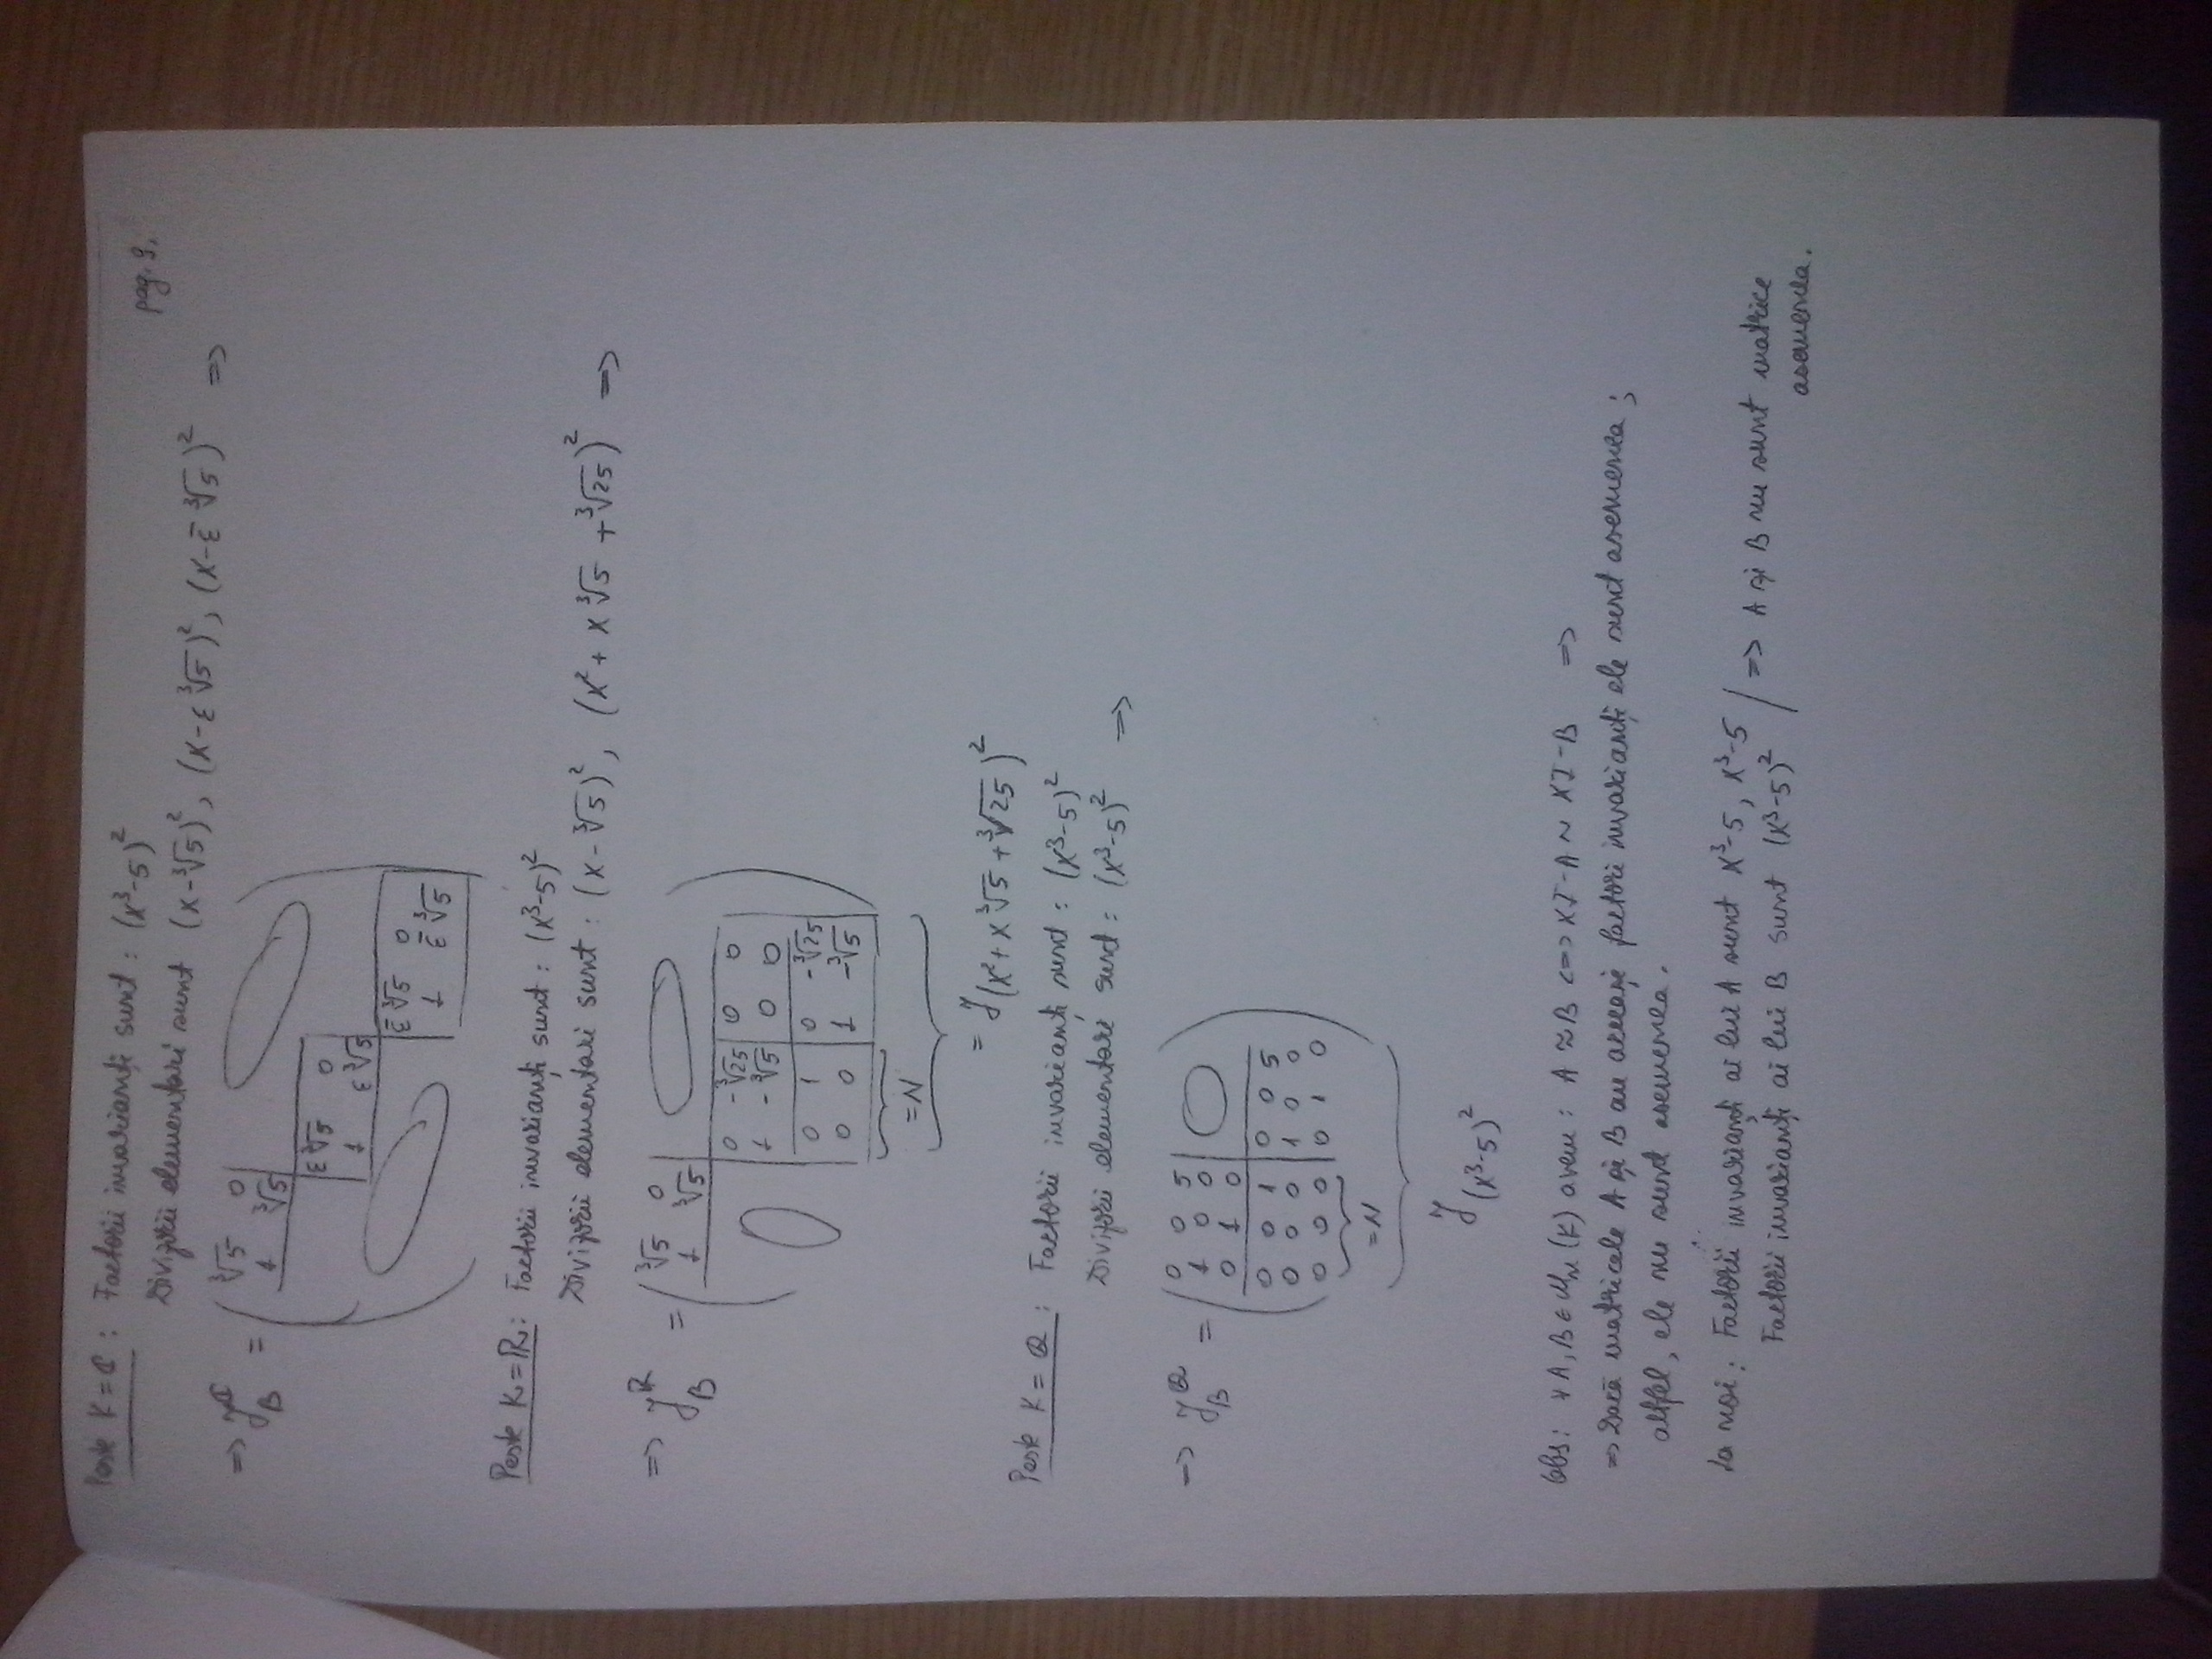 pag. 9.
Peste K=ℂ : Factorii invarianți sunt : (X³-5)²
Divizorii elementari sunt (X-∛5)², (X-ε∛5)², (X-ε̄∛5)² =>
=> J_B^ℂ =
∛5 0
1 ∛5
ε∛5 0
1 ε∛5
ε̄∛5 0
1 ε̄∛5
Peste K=ℝ : Factorii invarianți sunt : (X³-5)²
Divizorii elementari sunt : (X-∛5)², (X²+X∛5+∛25)² =>
=> J_B^ℝ =
∛5 0
1 ∛5
0 -∛25 0 0
1 -∛5 0 0
0 1 0 -∛25
0 0 1 -∛5
=N
= J_(X²+X∛5+∛25)²
Peste K=ℚ : Factorii invarianți sunt : (X³-5)²
Divizorii elementari sunt : (X³-5)² =>
=> J_B^ℚ =
0 0 5
1 0 0
0 1 0
0 0 1 0 0 5
0 0 0 1 0 0
0 0 0 0 1 0
=N
J_(X³-5)²
Obs: ∀ A, B ∈ M_n(K) avem : A ≈ B <=> XI-A ~ XI-B =>
=> Dacă matricele A și B au aceeași factori invarianți ele sunt asemenea ;
altfel, ele nu sunt asemenea.
La noi : Factorii invarianți ai lui A sunt X³-5, X³-5
Factorii invarianți ai lui B sunt (X³-5)² / => A și B nu sunt matrice
asemenea.